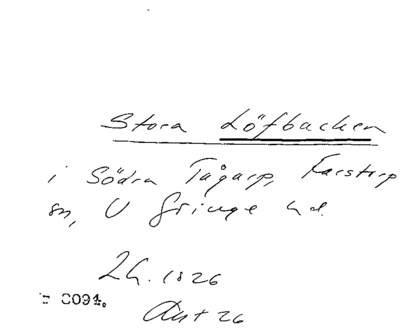 Stora Löfbacken
i Södra Tågarp, Farstorp
sn, V Göinge hd.
Lh. 1826
3094.
Akt 26